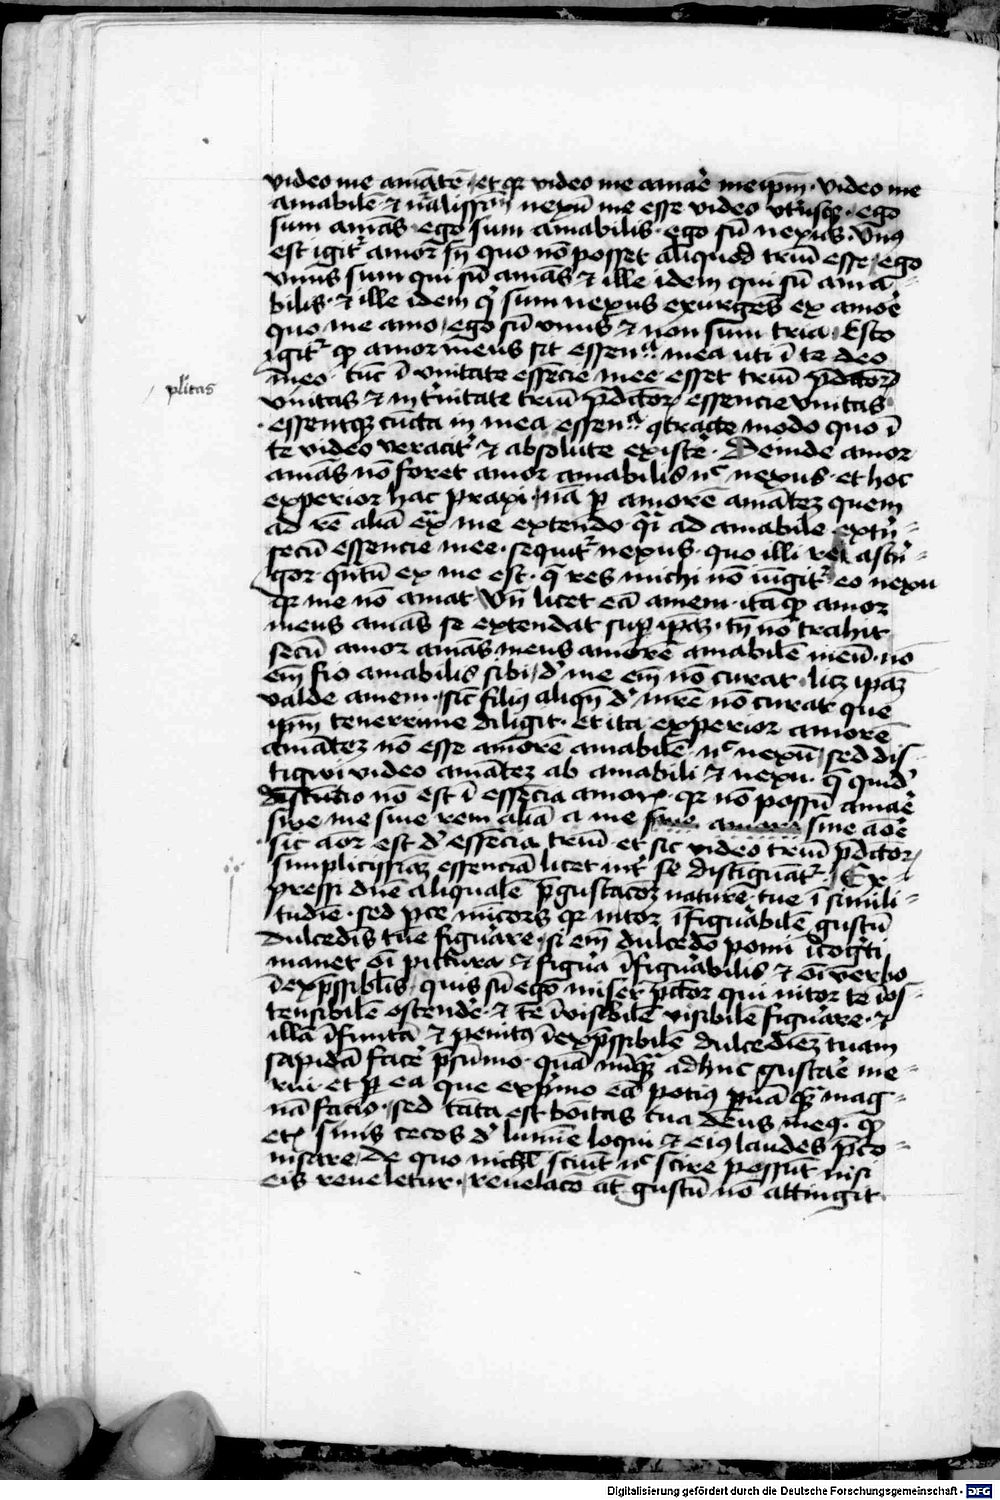 video me amātē et qr video me amar̄e meip̄m · video me
amabilē & nr̄alissim̄ nexū me esse video vtriusqȝ · ego
sum amās · ego sum amabilis · ego sū nexus · vnus
est igit̄ amor sn̄ quo nō posset aliquod triū esse · ego
vnus sum qui sū amās & ille idem qui sū ama-
bilis · & ille idem qͥ sum nexus exurgēs ex amor̄e
quo me amo · ego sū vnus & non sum tria · Esto
igit̄ qp amor meus sit essenᵃ mea uti ī te deo
meo · tūc ī vnitate essēcie mee esset triū p̄dc̄or
plītas
vnitas & in tͥnitate triū p̄dc̄or essencie vnitas
essentqȝ cūcta in mea essenᵃ ꝯtracte modo quo ī
te video veracit̄ & absolute existēr · Deinde amor
amās nō foret amor amabilis nᶜ nexus · et hoc
experior hac praxi · nā p̱ amorē amātez quem
ad rē aliā ex̄ᵃ me extendo qͣi ad amabile extͥn-
secū essencie mee · sequit̄ nexus · quo illi rei astͥn-
gor qn̄tū ex me est · q̄ res michi nō iūgit̄ eo nexu
qr me nō amat Vn̄ licet eā amem · ita qp amor
meus amās se extendat sup̱ ip̄aȝ · tn̄ nō trahit
secū amor amās meus amorē amabilē meū · nō
em̄ fio amabilis sibi · d̓ me em̄ nō curat · licȝ ip̄aȝ
valde amem · sic̄ filius aliqn̄ d̓ mr̄e nō curat que
ip̄m tenerrime diligit · Et ita experior amorē
amātez nō esse amorē amabilē nᶜ nexū · sed dis-
tigwi video amātez ab amabili & nexu · q̄ quid̓
distinctio nō est ī essēcia amor · qr nō possū amar̄e
siue me siue rem aliā a me sine aōr̄e
sic aōr est d̓ essēcia triū · et sic video triū p̄dc̄or
simplicissīaȝ essenciā licet int̄ se distiguāt̄ · Ex-
pressi dn̄e aliqualē p̄gustac̄oȝ nature tue ī simili-
tudīe · sed p̱ce mīcors qr nitor īfigurabilē gustū
dulcedīs tue figurar̄e · si em̄ dulcedo pomi īcogͥti
manet oī pictura & figura īfigurabilis & oī verbo
īexp̄ssiblīs quis sū ego miser p̄cc̄or qui nitor te īos-
tensibilē ostender̄e · & te īvisibilē visibilē figurar̄e · &
illā īfinitā & penitus īexp̄ssibilē dulcedīeȝ tuam
sapidā facer̄e p̄sūmo · quā nūqͣ adhuc gustar̄e me-
rui · et p̱ ea que exp̱mo eā potius p̱uā qͣ mag-
nā facio · sed tāta est bōitas tua deus meus · qp
etī sinis cecos d̓ lumīe loqui & eius laudes p̄co-
nisare · de quo nichil sciūt nᶜ scire possūt nisi
eis reueletur · reuelac̄o at̄ gustū nō attingit